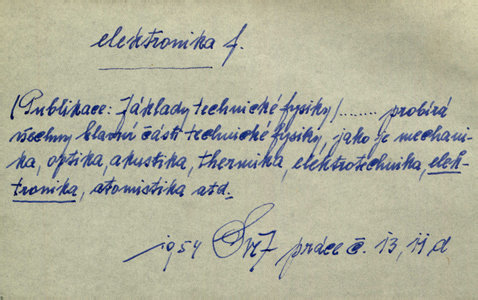 elektronika f.
(Publikace: Základy technické fysiky)........ probírá
všechny hlavní části technické fysiky, jako je mechani-
ka, optika, akustika, thermika, elektrotechnika, elek-
tronika, atomistika atd.
1954 práce č. 13, 11, d